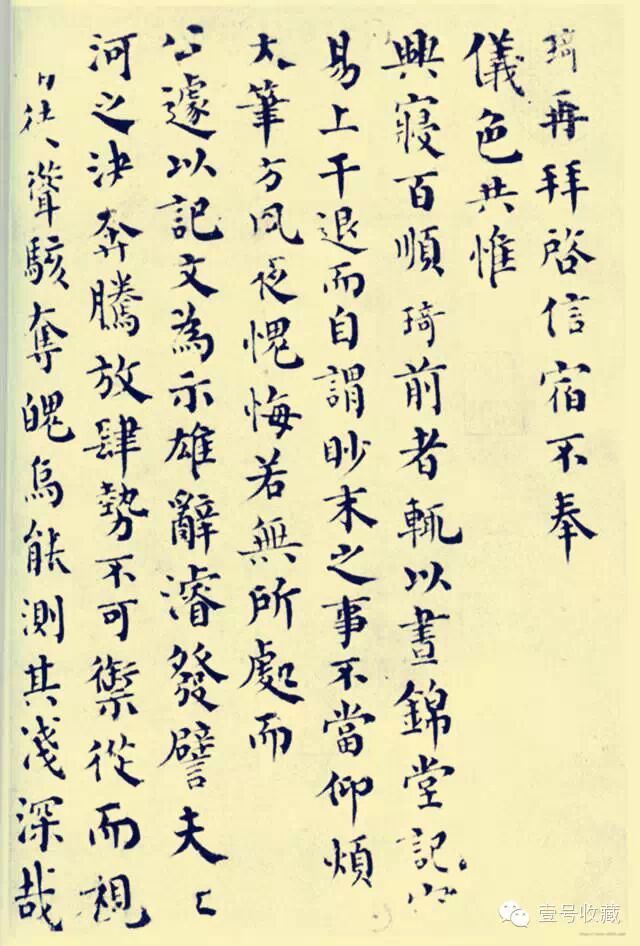 琦再拜啓信宿不奉
儀色共惟
興寢百順琦前者輒以晝錦堂記
易上干退而自謂眇末之事不當仰煩
大筆方夙夜愧悔若無所處而
公遽以記文為示雄辭濬發譬夫
河之決奔騰放肆勢不可禦從而視
徒聳駭奪魄烏能測其淺深哉
壹号收藏